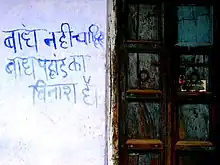 बांध नहीं चाहिए
बांध पहाड़ का
विनाश है।